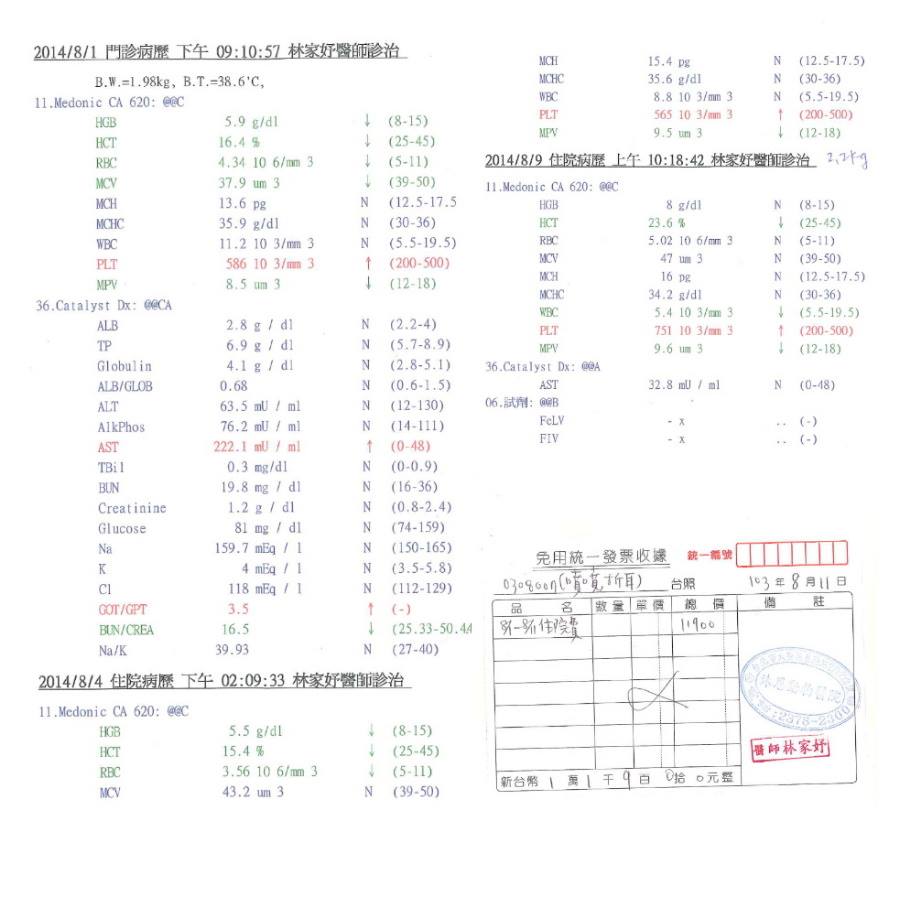 2014/8/1 門診病歷 下午 09:10:57 林家妤醫師診治
B.W.=1.98kg, B.T.=38.6'C,
11.Medonic CA 620: @@C
HGB 5.9 g/dl ↓ (8-15)
HCT 16.4 % ↓ (25-45)
RBC 4.34 10 6/mm 3 ↓ (5-11)
MCV 37.9 um 3 ↓ (39-50)
MCH 13.6 pg N (12.5-17.5
MCHC 35.9 g/dl N (30-36)
WBC 11.2 10 3/mm 3 N (5.5-19.5)
PLT 586 10 3/mm 3 ↑ (200-500)
MPV 8.5 um 3 ↓ (12-18)
36.Catalyst Dx: @@CA
ALB 2.8 g / dl N (2.2-4)
TP 6.9 g / dl N (5.7-8.9)
Globulin 4.1 g / dl N (2.8-5.1)
ALB/GLOB 0.68 N (0.6-1.5)
ALT 63.5 mU / ml N (12-130)
AlkPhos 76.2 mU / ml N (14-111)
AST 222.1 mU / ml ↑ (0-48)
TBil 0.3 mg/dl N (0-0.9)
BUN 19.8 mg / dl N (16-36)
Creatinine 1.2 g / dl N (0.8-2.4)
Glucose 81 mg / dl N (74-159)
Na 159.7 mEq / l N (150-165)
K 4 mEq / l N (3.5-5.8)
Cl 118 mEq / l N (112-129)
GOT/GPT 3.5 ↑ (-)
BUN/CREA 16.5 ↓ (25.33-50.4
Na/K 39.93 N (27-40)
2014/8/4 住院病歷 下午 02:09:33 林家妤醫師診治
11.Medonic CA 620: @@C
HGB 5.5 g/dl ↓ (8-15)
HCT 15.4 % ↓ (25-45)
RBC 3.56 10 6/mm 3 ↓ (5-11)
MCV 43.2 um 3 N (39-50)
MCH 15.4 pg N (12.5-17.5)
MCHC 35.6 g/dl N (30-36)
WBC 8.8 10 3/mm 3 N (5.5-19.5)
PLT 565 10 3/mm 3 ↑ (200-500)
MPV 9.5 um 3 ↓ (12-18)
2014/8/9 住院病歷 上午 10:18:42 林家妤醫師診治 2.2kg
11.Medonic CA 620: @@C
HGB 8 g/dl N (8-15)
HCT 23.6 % ↓ (25-45)
RBC 5.02 10 6/mm 3 N (5-11)
MCV 47 um 3 N (39-50)
MCH 16 pg N (12.5-17.5)
MCHC 34.2 g/dl N (30-36)
WBC 5.4 10 3/mm 3 ↓ (5.5-19.5)
PLT 751 10 3/mm 3 ↑ (200-500)
MPV 9.6 um 3 ↓ (12-18)
36.Catalyst Dx: @@A
AST 32.8 mU / ml N (0-48)
06.試劑: @@B
FeLV - x .. (-)
FIV - x .. (-)
免用統一發票收據 統一編號
(噴噴折耳) 台照 103 年 8 月 11 日
品 名 數量 單價 總 價 備 註
住院費 11900
醫師林家妤
新台幣 1 萬 1 千 9 百 0 拾 0 元整